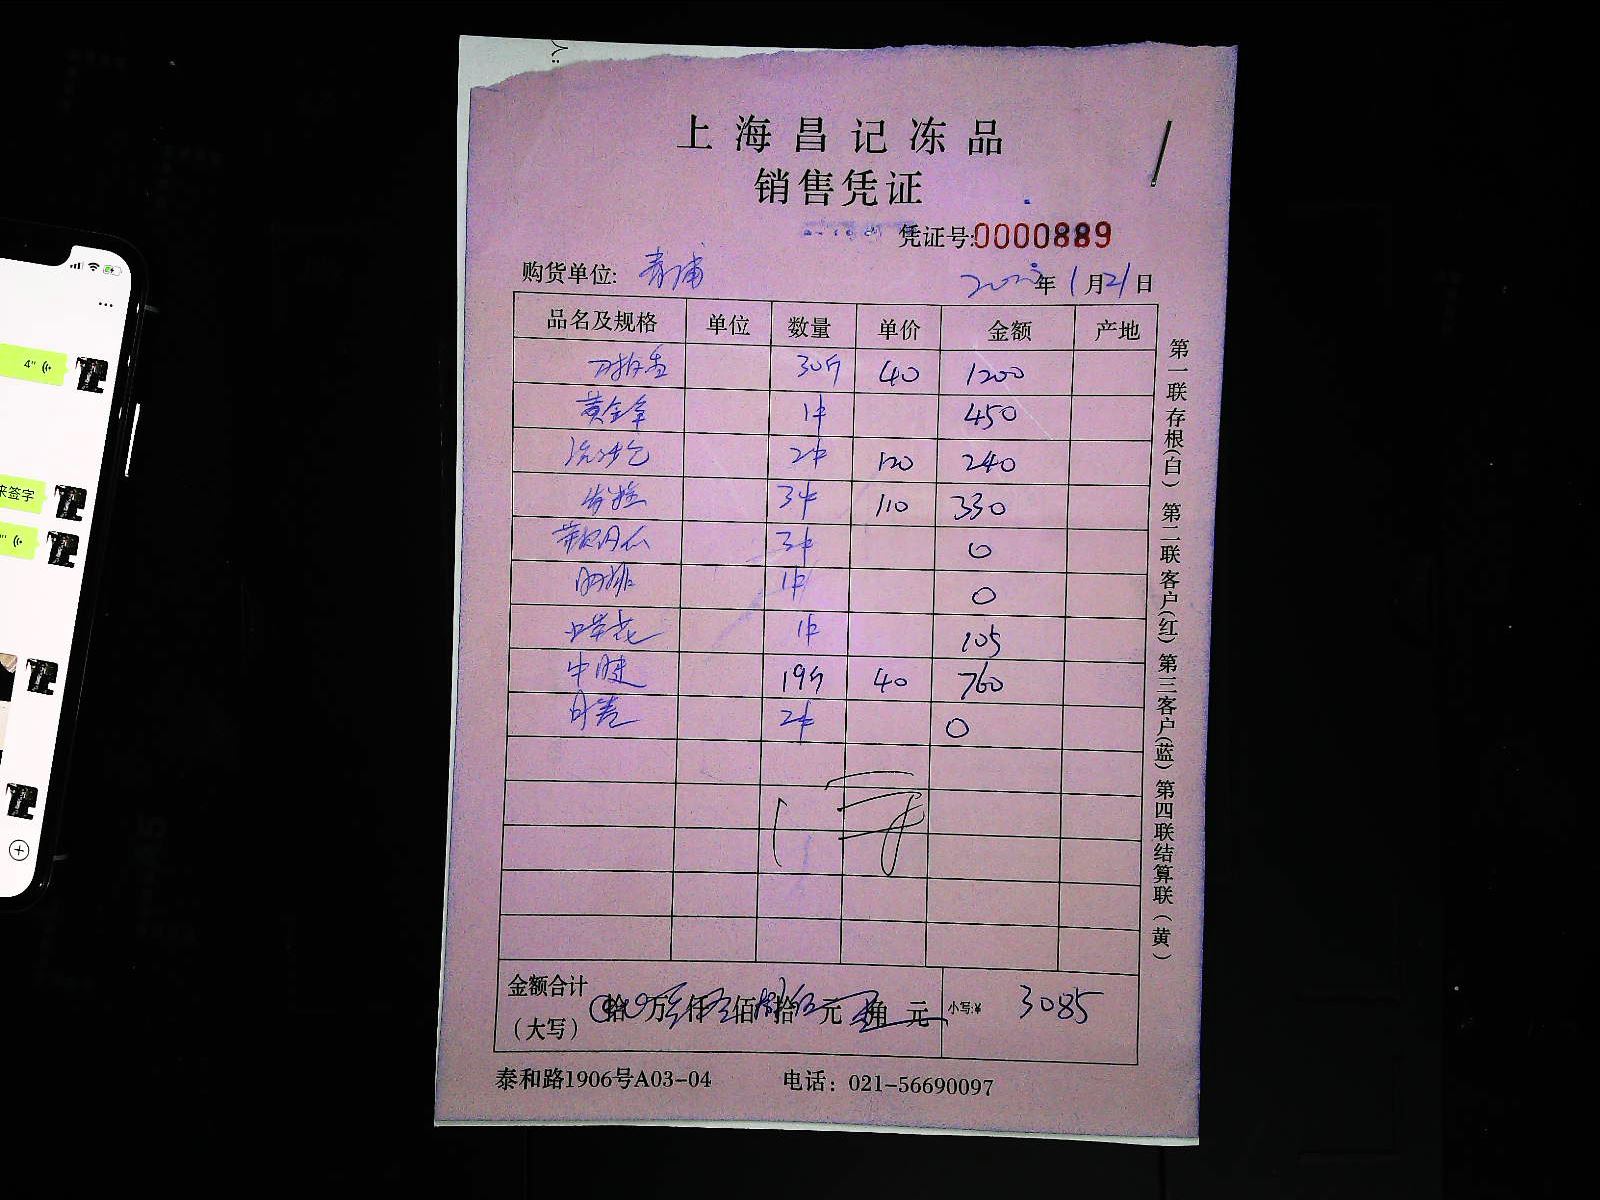 上海昌记冻品
销售凭证
凭证号:0000889
购货单位: 青浦
年 1月21日
品名及规格 单位 数量 单价 金额 产地
30斤 40 1200
黄金 1件 450
流沙包 2件 120 240
3件 110 330
3件 0
1件 0
1件 105
牛腱 19斤 40 760
2件 0
金额合计
(大写) 拾 万 仟 佰 拾 元 角 元 小写:¥ 3085
泰和路1906号A03-04 电话: 021-56690097
第一联存根(白) 第二联客户(红) 第三客户(蓝) 第四联结算联(黄)
4"
来签字